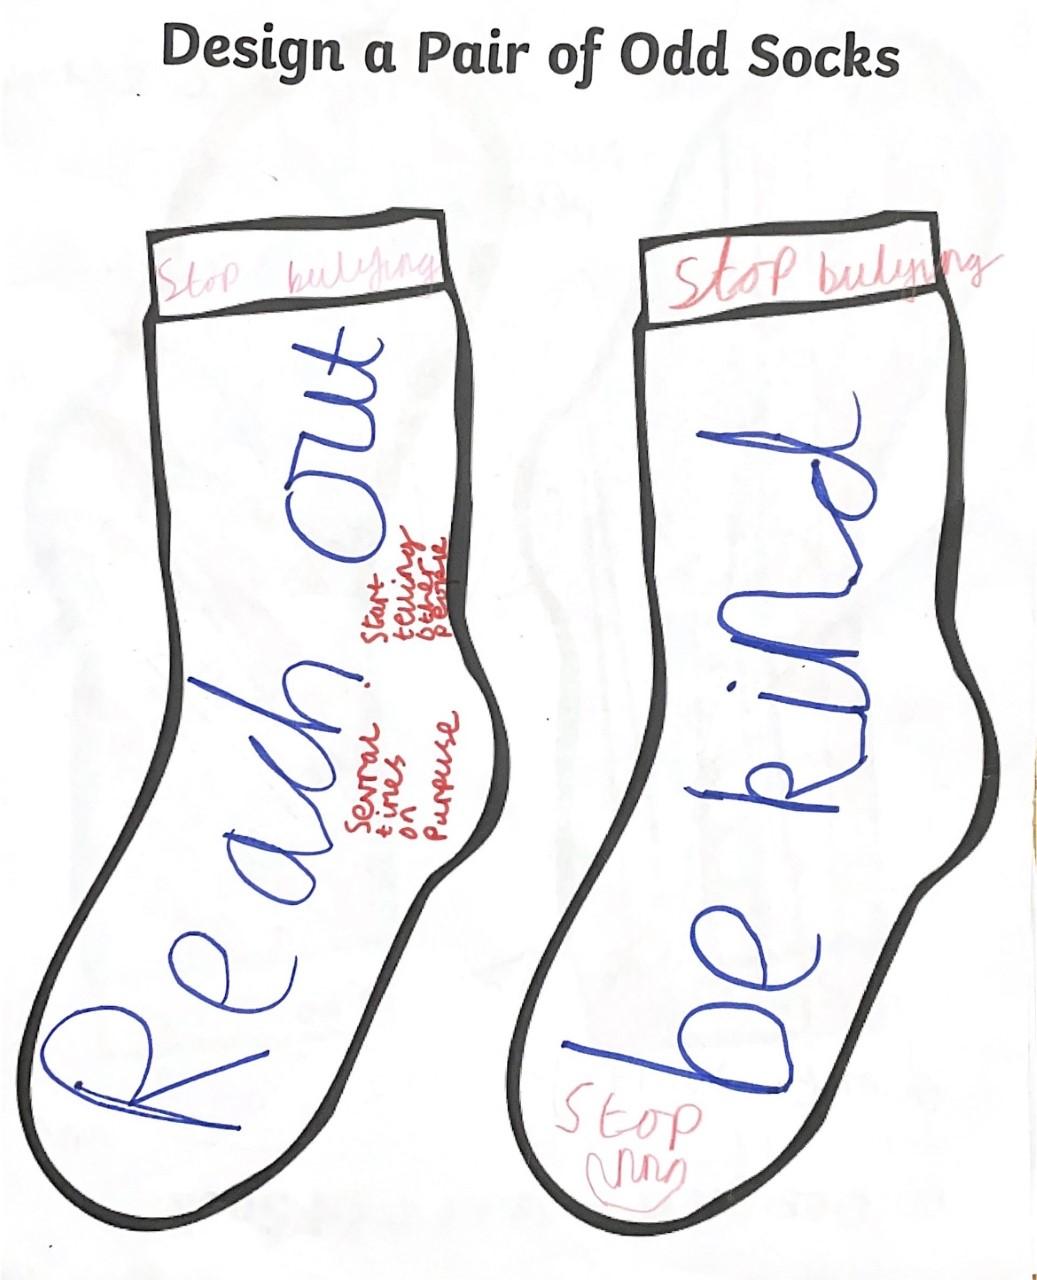 Design a Pair of Odd Socks
Stop bullying
Reach out
Sevral
times
on
purpuse
Start
telling
other
people
Stop bulying
be kind
Stop